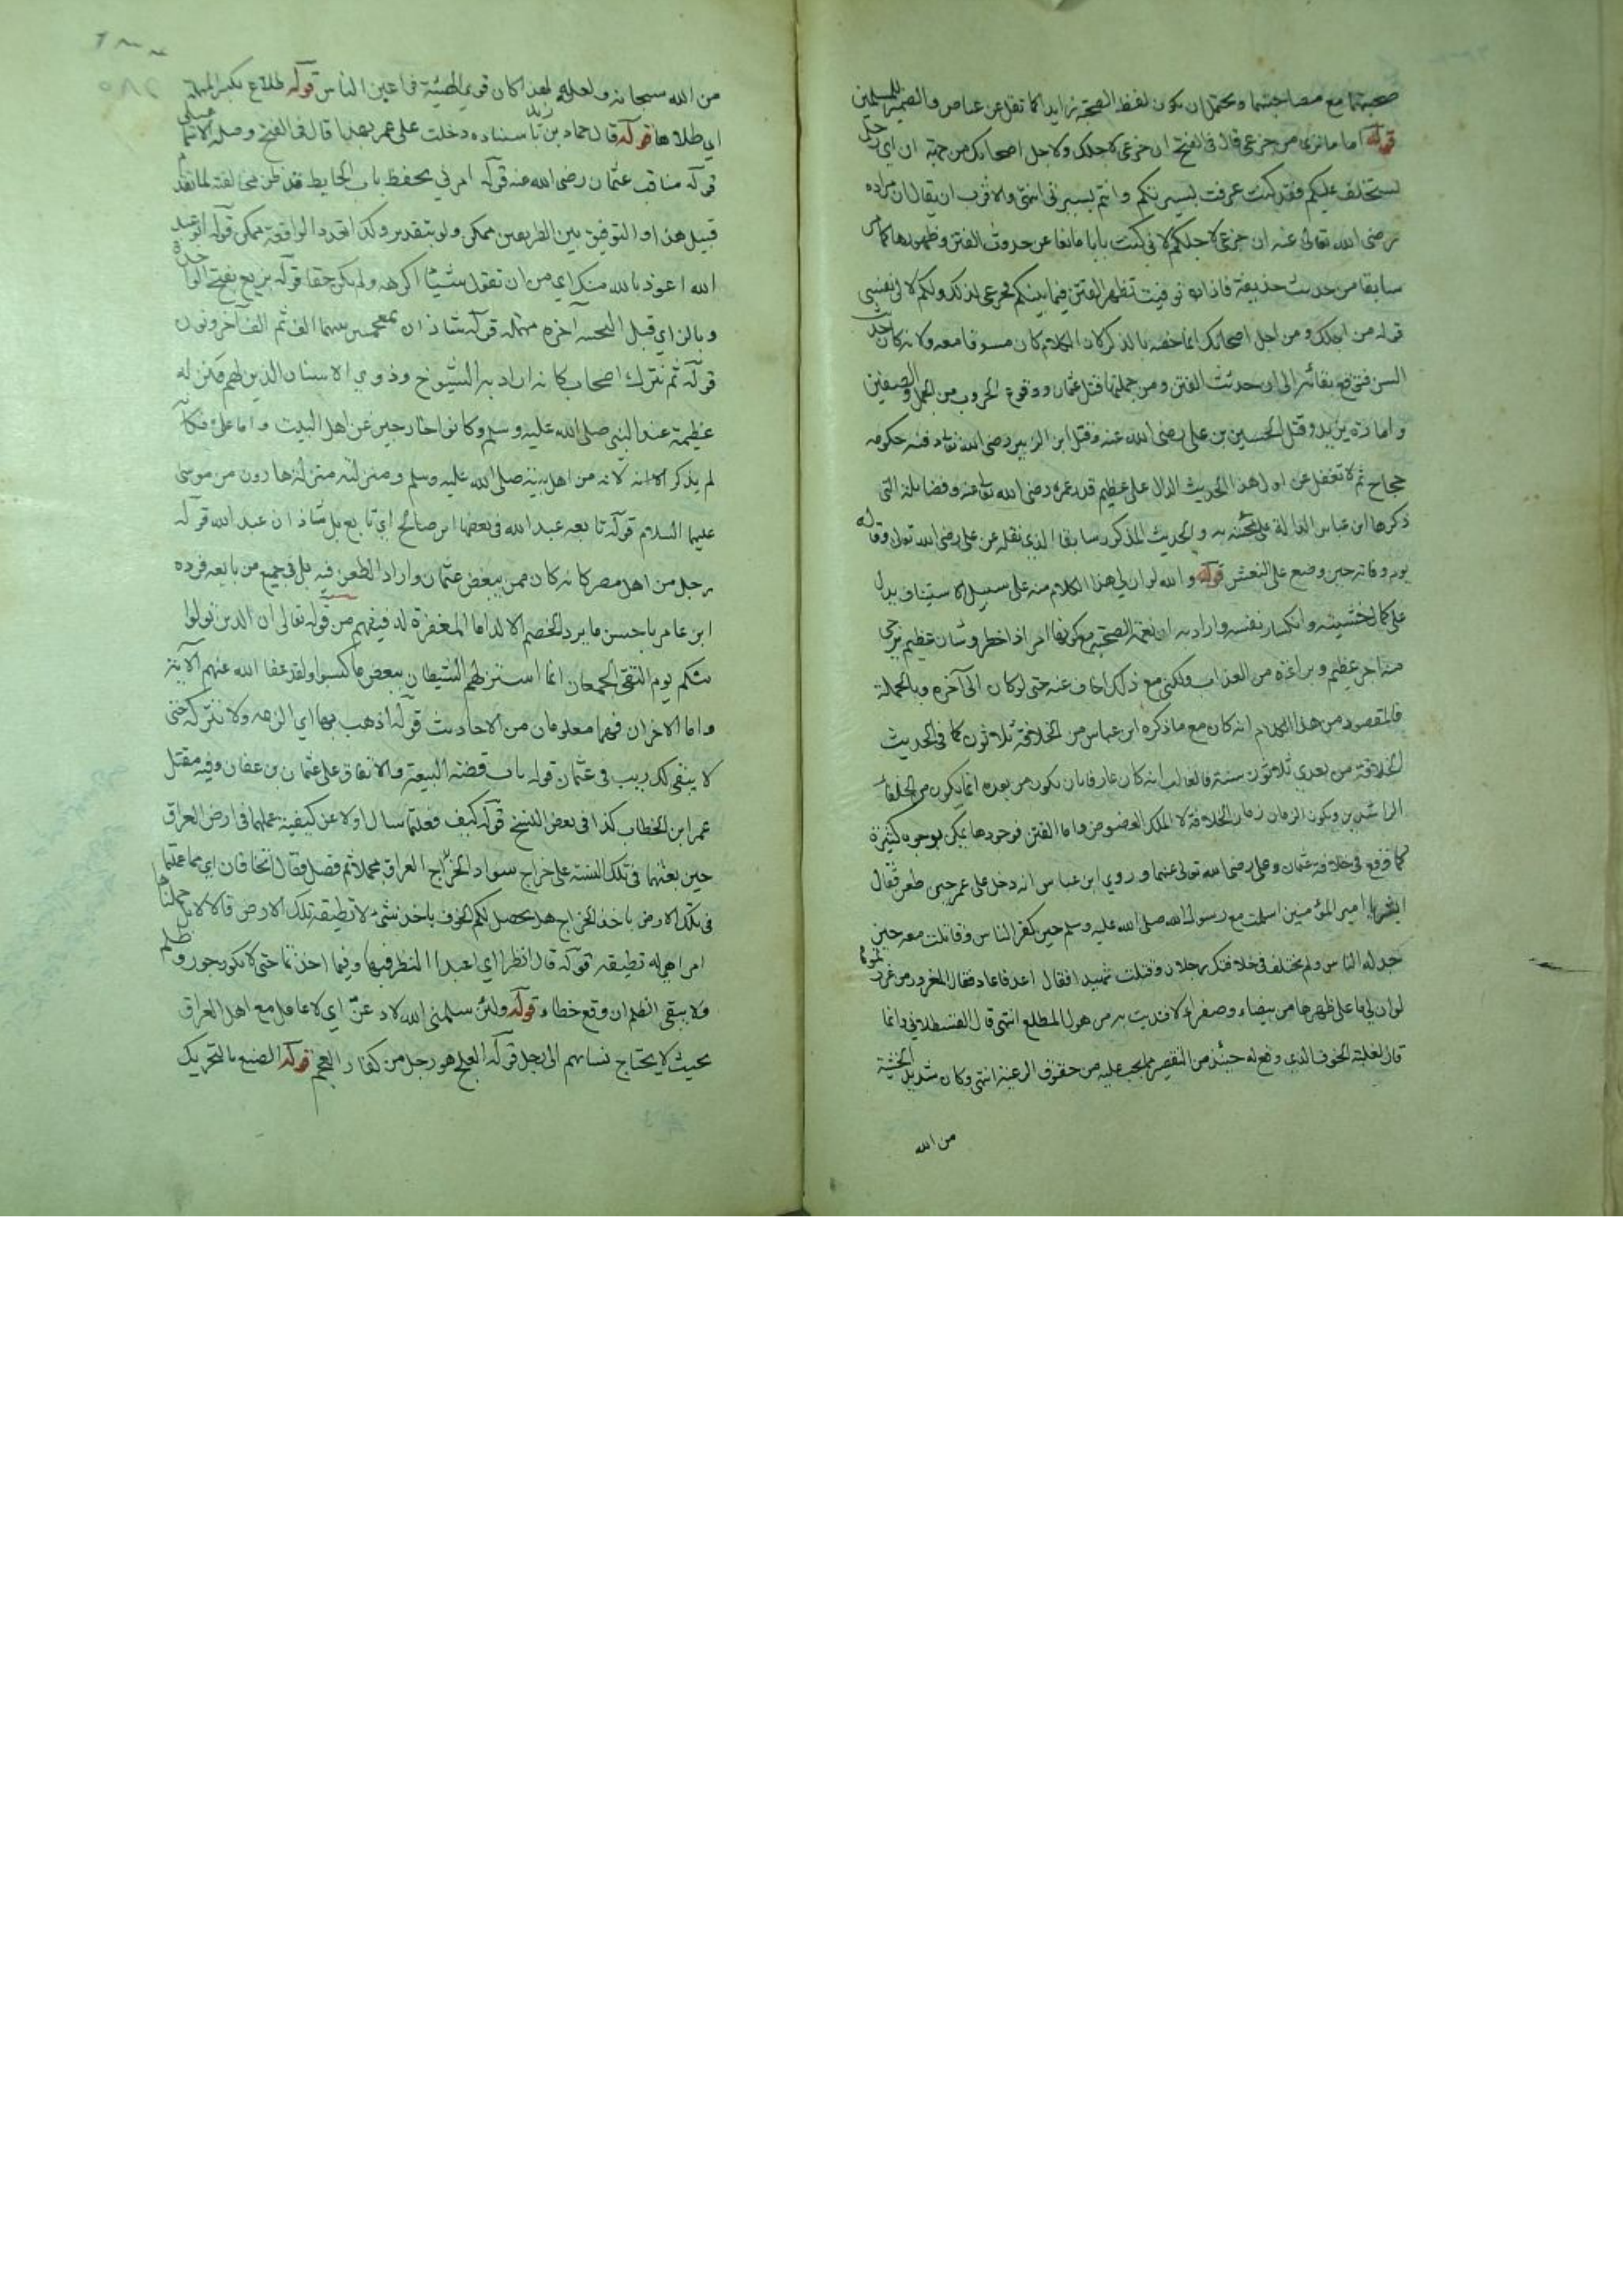 صحبتهما مع مصاحبتهما ويحتمل ان يكون لفظ الصحبة زايدا كما نقل عن عياض والضمير للمسلمين
قوله اما ما ترى من جزعي قال في الفتح ان جزعي لاجلك ولاجل اصحابك من جهة ان اي رجل
يستخلف عليكم فقد كنت عرفت بسيرتكم وانتم بسيرتي انتهى والاقرب ان يقال ان مراده
رضي الله تعالى عنه ان جزعي لاجلكم لاني كنت بابا مانعا عن حدوث الفتن وظهورها كما مر
سابقا من حديث حذيفة فاذا توفيت تظهر الفتن فيما بينكم فجزعي لذلك ولكم لا لنفسي
قوله من اجلك ومن اجل اصحابك انما خصه بالذكر لان الكلام كان مسوقا معه ولانه كان
السن بقائه الى ان حدثت الفتن ومن جملتها قتل عثمان ووقوع الحروب من الجمل والصفين
وامارة يزيد وقتل الحسين بن علي رضي الله عنه وقتل ابن الزبير رضي الله حكومة
حجاج ثم لا تغفل عن اول هذا الحديث الدال على عظيم قدر عمر رضي الله تعالى عنه وفضايله التي
ذكرها ابن عباس الدالة على به والحديث المذكور سابقا الذي نقله عن علي رضي الله وقاله
يوم وفاته حين وضع على النعش قوله والله لو ان لي هذا الكلام منه على سبيل الاستيناف يدل
على كمال خشيته وانكسار نفسه واراد به ان نعمة الصحبة مع كونها امر اذا خطر وشان عظيم يرجى
منه اجر عظيم وبراءة من العذاب ولكني مع ذلك اخاف عنه حتى لو كان الى آخره وبالجملة
فالمقصود من هذا الكلام انه كان مع ما ذكره ابن عباس من الخلافة ثلاثون كما في الحديث
الخلافة من بعدي ثلاثون سنة فالغالب انه كان عارفا بان يكون من بعده انما يكون من الخلفاء
الراشدين ويكون الزمان زمان الخلافة لا الملك العضوض واما الفتن فوجودها يمكن بوجوه كثيرة
كما وقع في خلافة عثمان وعلي رضي الله تعالى عنهما وروى ابن عباس انه دخل على عمر حين طعن فقال
ابشر يا امير المؤمنين اسلمت مع رسول الله صلى الله عليه وسلم حين كفر الناس وقاتلت معه حين
خذله الناس ولم يختلف في خلافتك رجلان وقتلت شهيدا فقال اعد فاعاد فقال المغرور من غررتموه
لو ان لي ما على ظهرها من بيضاء وصفراء لافتديت به من هول المطلع انتهى قال القسطلاني وانما
قال لغلبة الخوف الذي وقع له حينئذ من التقصير مما يجب عليه من حقوق الرعية انتهى وكان شديد الخشية
من الله
من الله سبحانه ولعله لهذا كان قوي الهيئة في اعين الناس قوله طلاع بكسر المهملة
اي طلاها قوله قال حماد بن زيد باسناده دخلت على عمر بهذا قال في الفتح وصله الاسماعيلي
قوله مناقب عثمان رضي الله عنه قوله امرني بحفظ باب الحايط فقد ظن مخالفته لما تقدم
قبيل هذا والتوفيق بين الطريقين ممكن ولو بتقدير وكذا تعدد الواقعة ممكن قوله اعوذ
الله اعوذ بالله منك اي من ان تقول شيئا اكرهه ولم يكن حقا قوله بزيع بفتح
وبالزاي قبل التحتية آخره مهملة قوله شاذان بمعجمتين بينهما الف ثم الف آخر ونون
قوله ثم نترك اصحاب كانه اراد به الشيوخ وذوي الاسنان الذين لهم منزلة
عظيمة عند النبي صلى الله عليه وسلم وكانوا خارجين عن اهل البيت واما علي فكان
لم يذكر لانه من اهل بيته صلى الله عليه وسلم ومنزلته منزلة هارون من موسى
عليهما السلام قوله تابعه عبد الله في بعضها ابن صالح اي تابع بل شاذان عبد الله قوله
رجل من اهل مصر كانه كان ممن يبغض عثمان واراد الطعن فيه بل في جميع من بايعه فرده
ابن عمر باحسن ما يرد الخصم الالد اما المغفرة له فيفهم من قوله تعالى ان الذين تولوا
منكم يوم التقى الجمعان انما استزلهم الشيطان ببعض ما كسبوا ولقد عفا الله عنهم الآية
واما الاخران فهما معلومان من الاحاديث قوله اذهب بها اي الزمه ولا تتركه حتى
لا يبقى لك ريب في عثمان قوله باب قصة البيعة والاتفاق على عثمان بن عفان وفيه مقتل
عمر ابن الخطاب كذا في بعض النسخ قوله كيف فعلتما سال اولا عن كيفية عملهما في ارض العراق
حين بعثهما في تلك السنة على خراج سواد العراق مجملا ثم فصل فقال اتخافان اي مما عملتما
في تلك الارض باخذ الخراج هل يحصل لكم الخوف باخذ شيء لا تطيقه تلك الارض قالا لا بل حملناها
امرا هي له تطيقه قوله قال انظرا اي اعيدا النظر فيها وفيما اخذتما حتى لا يكون جور وظلم
ولا يبقى الظلم ان وقع خطاء قوله ولئن سلمني الله لادعن اي لاعامل مع اهل العراق
بحيث لا يحتاج نساءهم الى رجل قوله العلج هو رجل من كفار العجم قوله الصنع بالتحريك